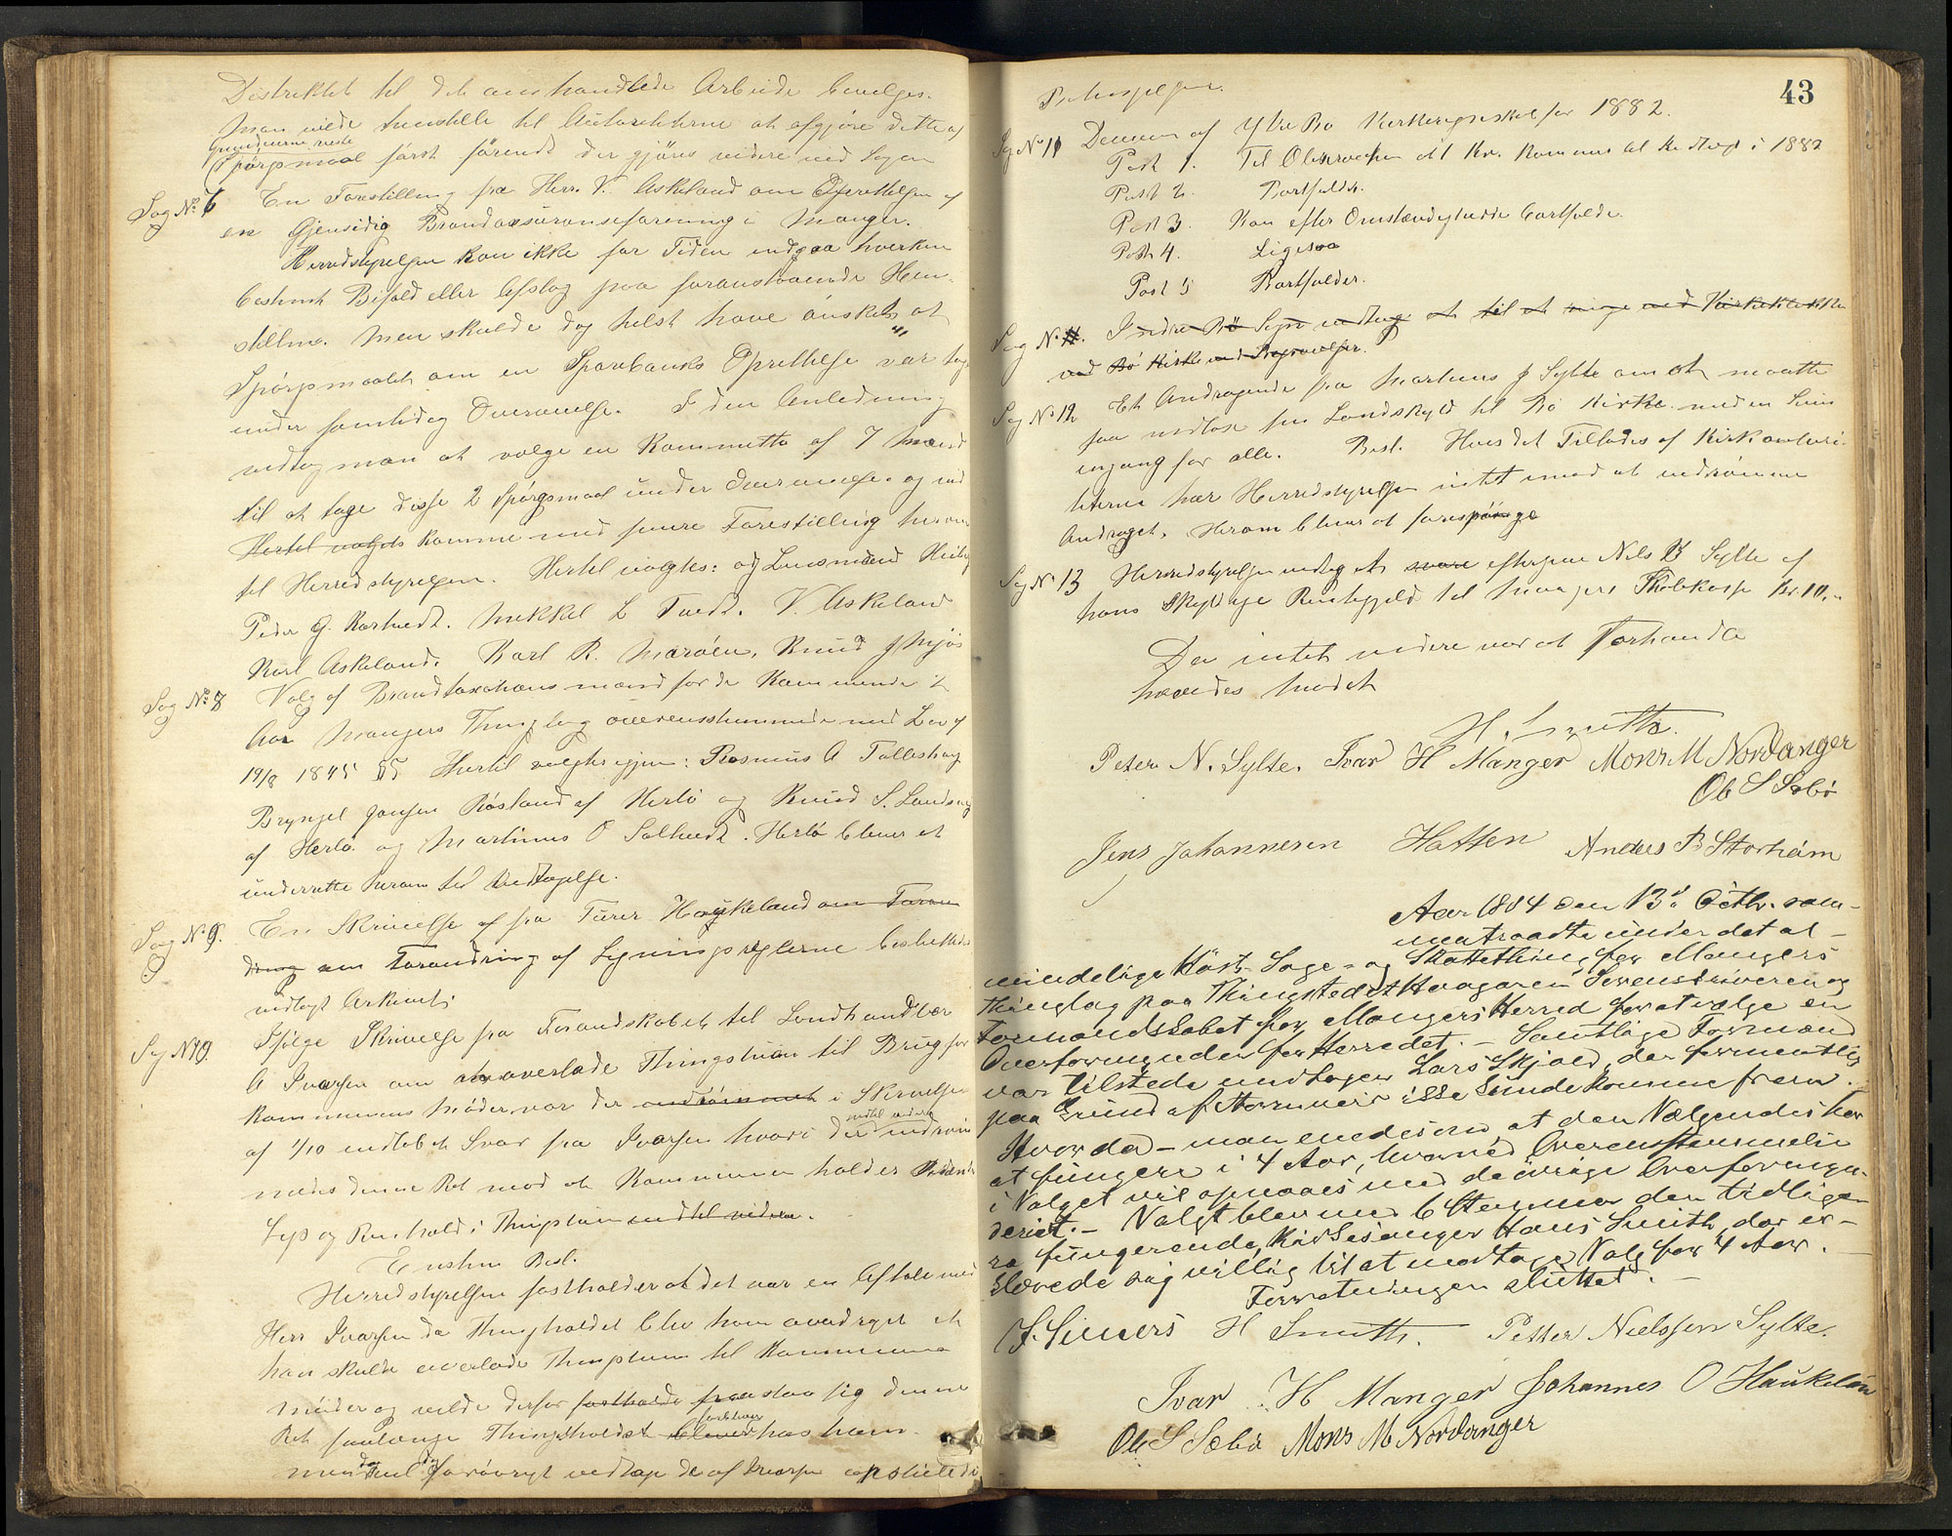 Distriktet til det omhandlede Arbeide bevilges.
Man vilde henstille til Autoriteterne at afgjøre dette af
Spörgsmaal först förend der gjöres videre ved Sagen
Sag No 6 En Forestilling fra Herr V. Askeland om Oprettelsen af
en Gjensidig Brandassuranseforening i Manger.
Herredstyrelsen kan ikke for Tiden indgaa hverken
bestemt Bifald eller Afslag paa foranstaaende Hen-
stilling. Men skulde dog helst have önsket at
Spörgsmaalet om en Sparebanks Oprettelse var tag
under samtidig Overveielse. I den Anledning
vedtog man at vælge en Kommitte af 7 Mænd
til at tage disse 2 Spörgsmaal under Overveielse og ind
Hertil valgtes komme med senere Forestilling herom
til Herredstyrelsen. Hertil valgtes: Lensmand
Peder G. Kartvedt. Mikkel L Tvedt. V. Askeland
Karl Askeland. Karl R. Maröen, Knud J Mjös
Sag No 8 Valg af Brandtaxationsmænd for de Kommende
Aar Mangers Thinglag overensstemmende med Lov af
19/8 1845 § Hertil valgtes igjen: Rasmus A Tolleshaug
Brynjel Jansen Rösland af Herlö og Knud S. Landsvig
af Herlö og Martinus O Soltvedt. Herlö blev at
underrette herom til Vedtagelse.
Sag No 9. En Skrivelse af fra Turer Haukeland om Foran
dring om Forandring af Ligningsreglerne besluttedes
vedlagt Arkivet.
Sag No 10. Ifölge Skrivelse fra Formandskabet til Landhandler
A Ivarsen om at overlade Thingstuen til Brug for
Kommunens Möder, var der indrömmet i Skrivelse
indtil videre
af 1/10 indlöbet Svar fra Ivarsen hvori der indröm
medes denne Ret mod at Kommunen holder
Lys og Renhold i Thingstuen indtil videre.
Enstm Besl.
Herredstyrelsen fastholder at det var en Aftale med
Herr Ivarsen da Thingholdet blev ham overdraget at
han skulde overlade Thingstuen til Kommunens
Möder og vilde derfor fastholde sig denne
Ret saalænge Thingholdet blever hos ham.
men forövrigt vedtage de af Ivarsen opstillede
43
Betingelser.
Sag No 11 Decision af Ytre Bö Kirkeregnskab for 1882.
Post 1. Til Observation
Post 2. Bortfalder.
Post 3. Kan efter Omstændighederne bortfalde.
Post 4. Ligesaa
Post 5 Bortfalder.
Sag No 11. Indre Bö Sogn vedtog at til at ringe med Kirkeklokken
ved Bö Kirke ved Begravelser.
Sag No 12 Et Andragende fra Martinus J Sylte om at maatte
faa indlöse sin Landskyld til Bö Kirke med en Sum
engang for alle. Besl. Hvis det Tillades af Kirkeautori-
teterne har Herredstyrelsen intet imod at indrömme
Andraget. Herom bliver at forespörge
Sag No 13 Herredstyrelsen vedtog at svare eftergive Nils Sylte af
hans Skyldige Restgjeld til Mangers Skolekasse Kr. 10.
Da intet videre var at Forhandle
hævedes Mödet
H. Smith.
Peter N. Sylte. Ivar H Manger Mons M Nordanger
Ole S Sæbö
Jens Johannesen Hatten Anders B Storheim
Aar 1884 den 13de Octbr. sam-
mentraadte under det al-
mindelige Höst-Sage- og Skattething for Mangers
thinglag paa Thingstedet Haagaren Sorenskriveren og
Formandskabet for Mangers Herred for at vælge en
Overformynder for Herredet. – Samtlige Formænd
var tilstede undtagen Lars Skjold, der formentlig
paa Grund af Stormveir ikke kunde komme frem. –
Hvorda – man enedes om at den Vælgendes har
at fungere i 4 Aar, hvorved Overensstemmelse
i Valget vil opnaaes med de övrige Overformyn-
deriet. – Valgt blev med 6 Stemmer den tidlige-
re fungerende, Kirkesanger Hans Smith, der er-
klærede sig villig til at modtage Valg for 4 Aar. –
Forretningen sluttet. –
J. Sievers H Smith. Petter Nielssen Sylte.
Ivar H Manger Johannes O Haukeland
Ole S Sæbö Mons M Nordanger